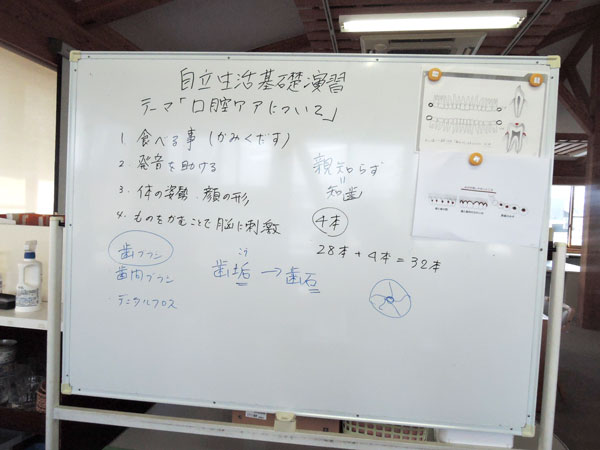 自立生活基礎演習
テーマ「口腔ケアについて」
1. 食べる事 (かみくだす)
2. 発音を助ける
3. 体の姿勢、顔の形
4. ものをかむことで脳に刺激
親知らず
＝
知歯
4本
28本+4本=32本
歯ブラシ
歯間ブラシ
・デンタルフロス
こう
歯垢→歯石